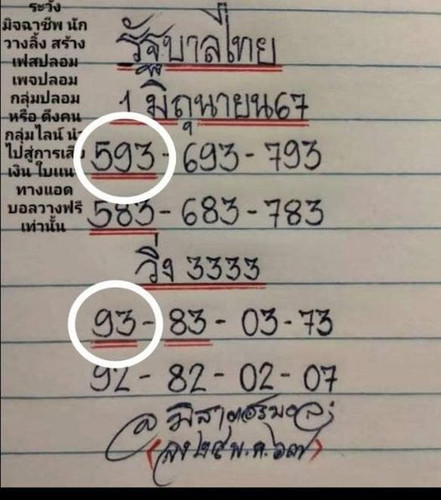 ระวัง
มิจฉาชีพ นัก
วางลิ้ง สร้าง
เฟสปลอม
เพจปลอม
กลุ่มปลอม
หรือ ดึงคน
กลุ่มไลน์ นำ
ไปสู่การเสีย
เงิน ใบแนว
ทางแอด
บอลวางฟรี
เท่านั้น
รัฐบาลไทย
1 มิถุนายน67
593-693-793
583-683-783
วิ่ง 3333
93-83-03-73
92-82-02-07